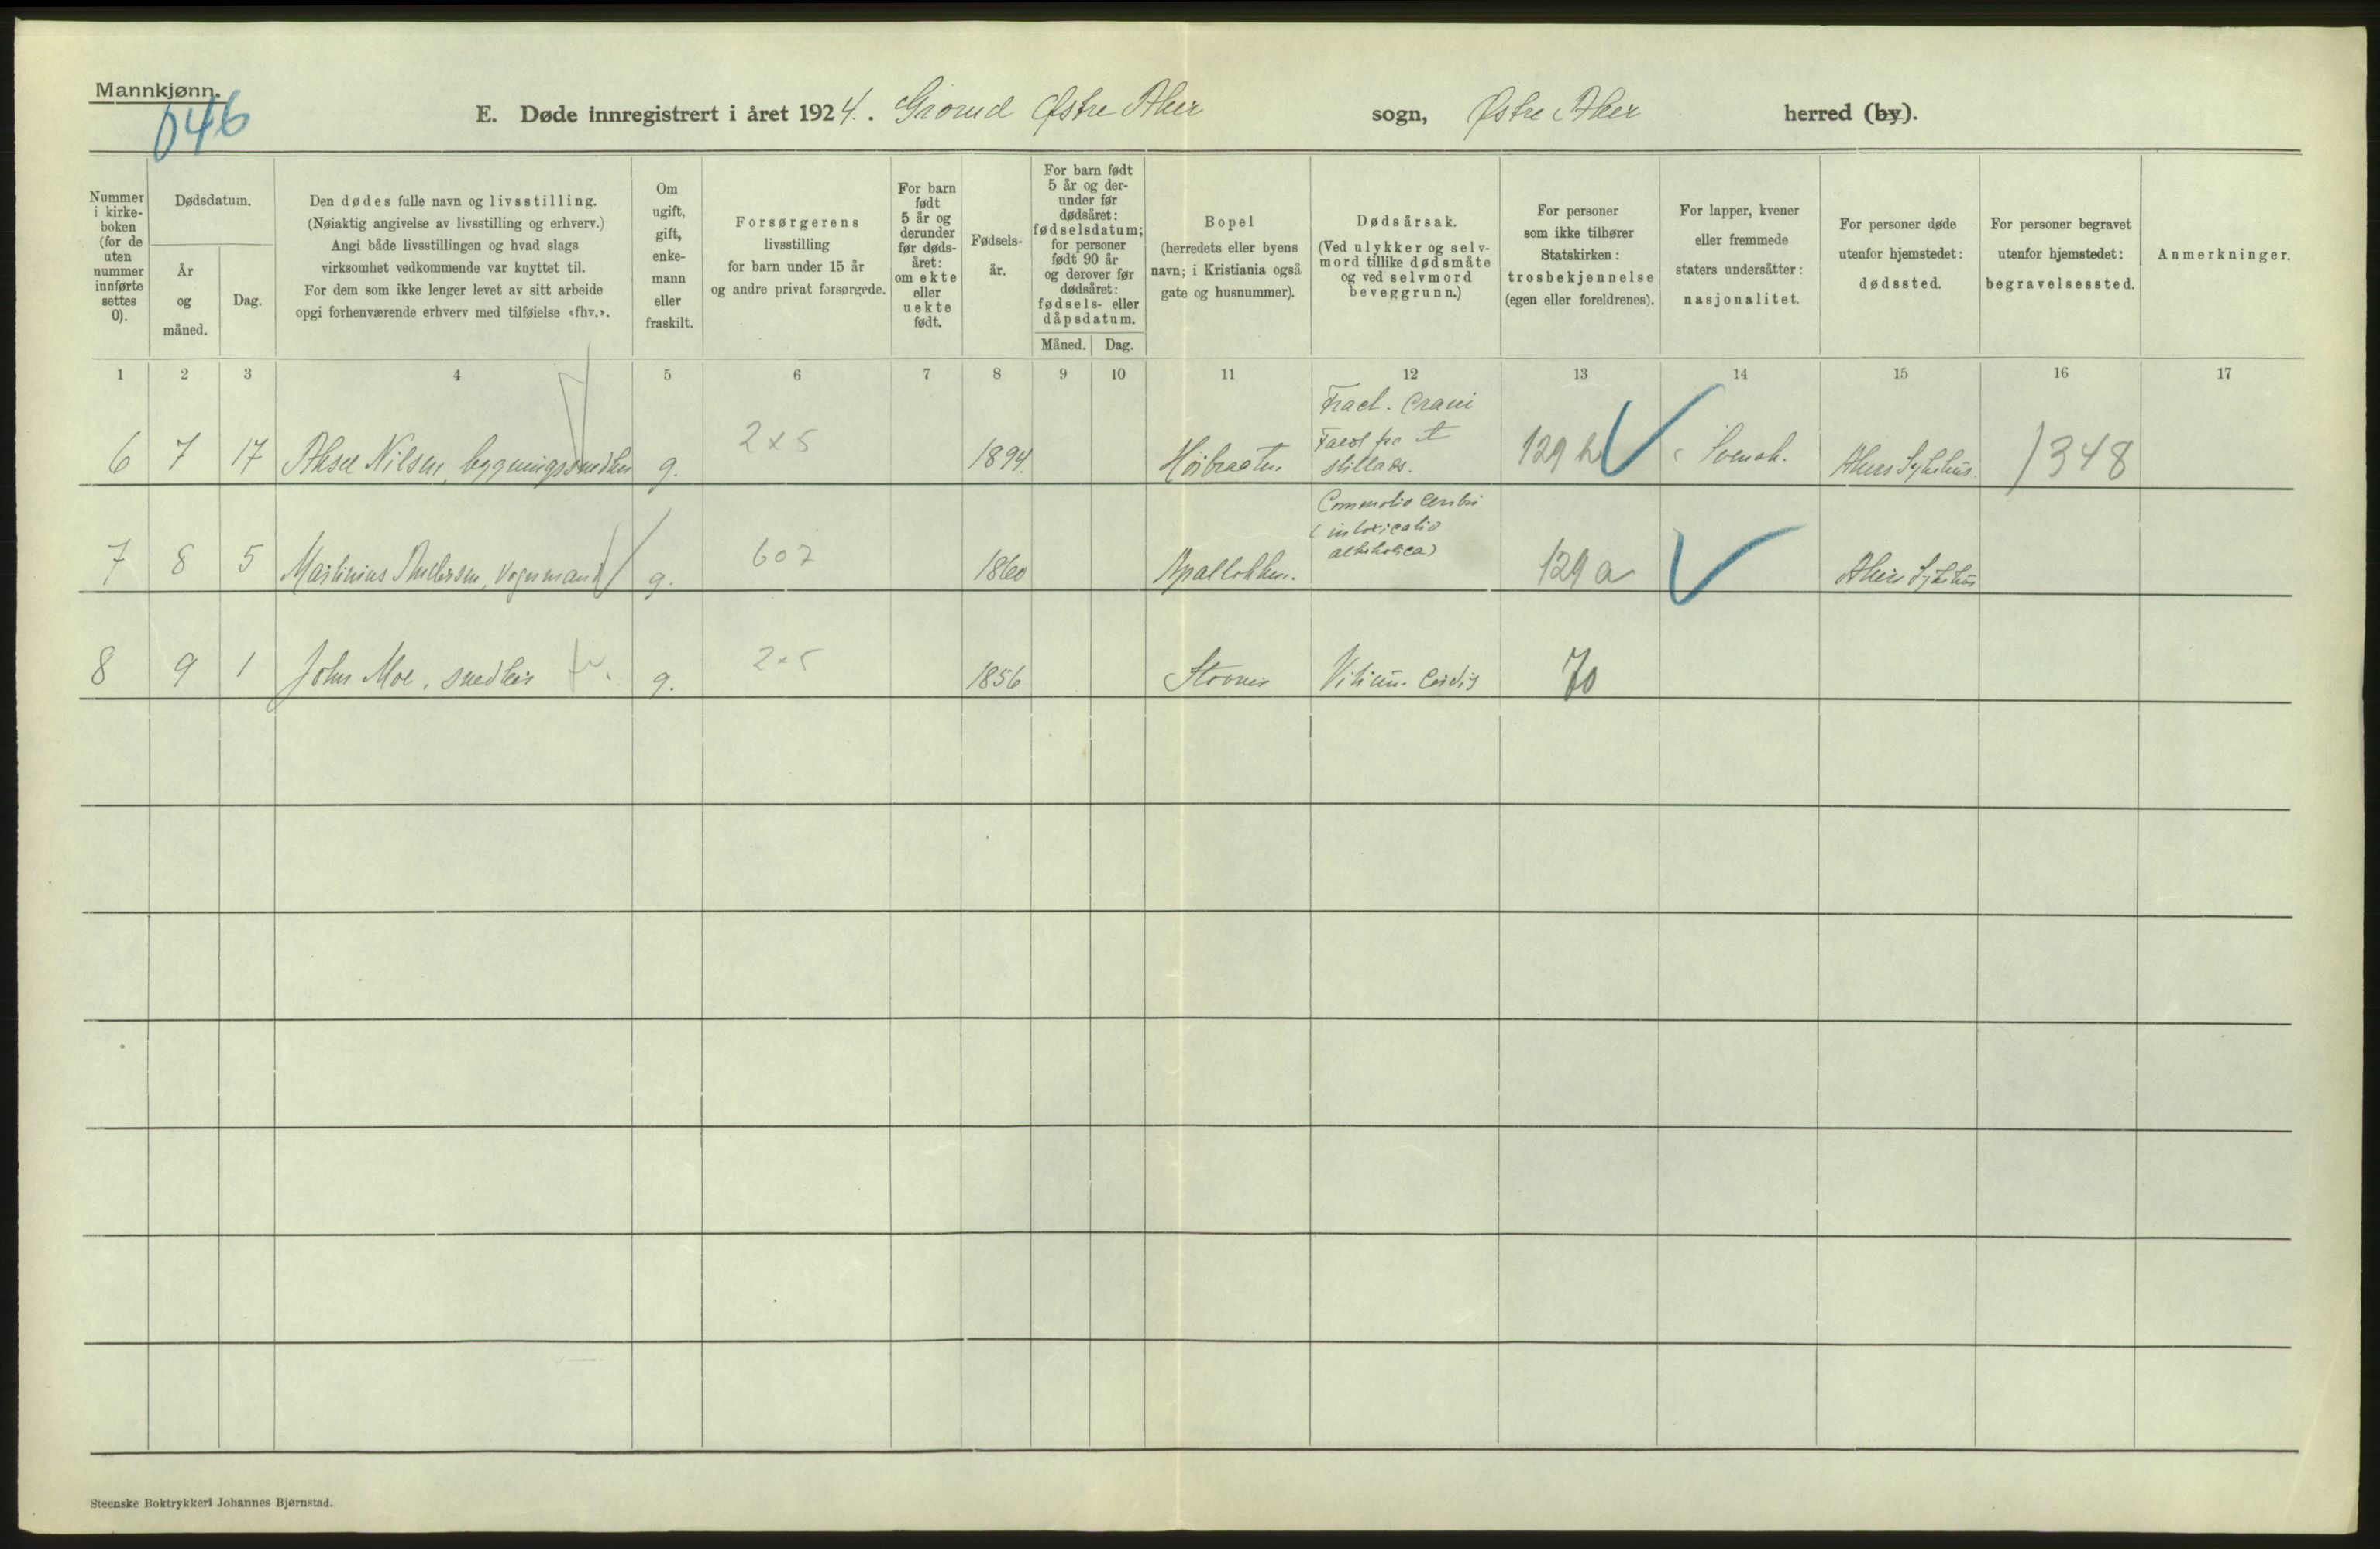 Mannkjønn.
046
E. Døde innregistrert i året 1924. Grorud Østre Aker sogn, Østre Aker herred (by).
Nummer
i kirke-
boken
(for de
uten
nummer
innførte
settes
0).
Dødsdatum.
År
og
måned.
Dag.
Den dødes fulle navn og livsstilling.
(Nøiaktig angivelse av livsstilling og erhverv.)
Angi både livsstillingen og hvad slags
virksomhet vedkommende var knyttet til.
For dem som ikke lenger levet av sitt arbeide
opgi forhenværende erhverv med tilføielse «fhv.».
Om
ugift,
gift,
enke-
mann
eller
fraskilt.
Forsørgerens
livsstilling
for barn under 15 år
og andre privat forsørgede.
For barn
født
5 år og
derunder
før døds-
året:
om ekte
eller
uekte
født.
Fødsels-
år.
For barn født
5 år og der-
under før
dødsåret:
fødselsdatum;
for personer
født 90 år
og derover før
dødsåret:
fødsels- eller
dåpsdatum.
Måned. Dag.
Bopel
(herredets eller byens
navn; i Kristiania også
gate og husnummer).
Dødsårsak.
(Ved ulykker og selv-
mord tillike dødsmåte
og ved selvmord
beveggrunn.)
For personer
som ikke tilhører
Statskirken:
trosbekjennelse
(egen eller foreldrenes).
For lapper, kvener
eller fremmede
staters undersåtter:
nasjonalitet.
For personer døde
utenfor hjemstedet:
dødssted.
For personer begravet
utenfor hjemstedet:
begravelsessted.
Anmerkninger.
1 2 3 4 5 6 7 8 9 10 11 12 13 14 15 16 17
Fract. Crani
Fald fra et
stillads.
6 7 17 Aksel Nilsen, bygningssnedker g. 2x5 1894. Høibraaten 129 h Svensk. Akers Sykehus. 348
Commotio Cerebri
(intoxicatio
alkoholica)
7 8 5 Martinius Andersen, vognmand g. 607 1860 Apalløkken. 129 a Akers Sykehus
8 9 1 John Moe, snedker g. 2x5 1856 Stovner Vitium Cordis 70
Steenske Boktrykkeri Johannes Bjørnstad.